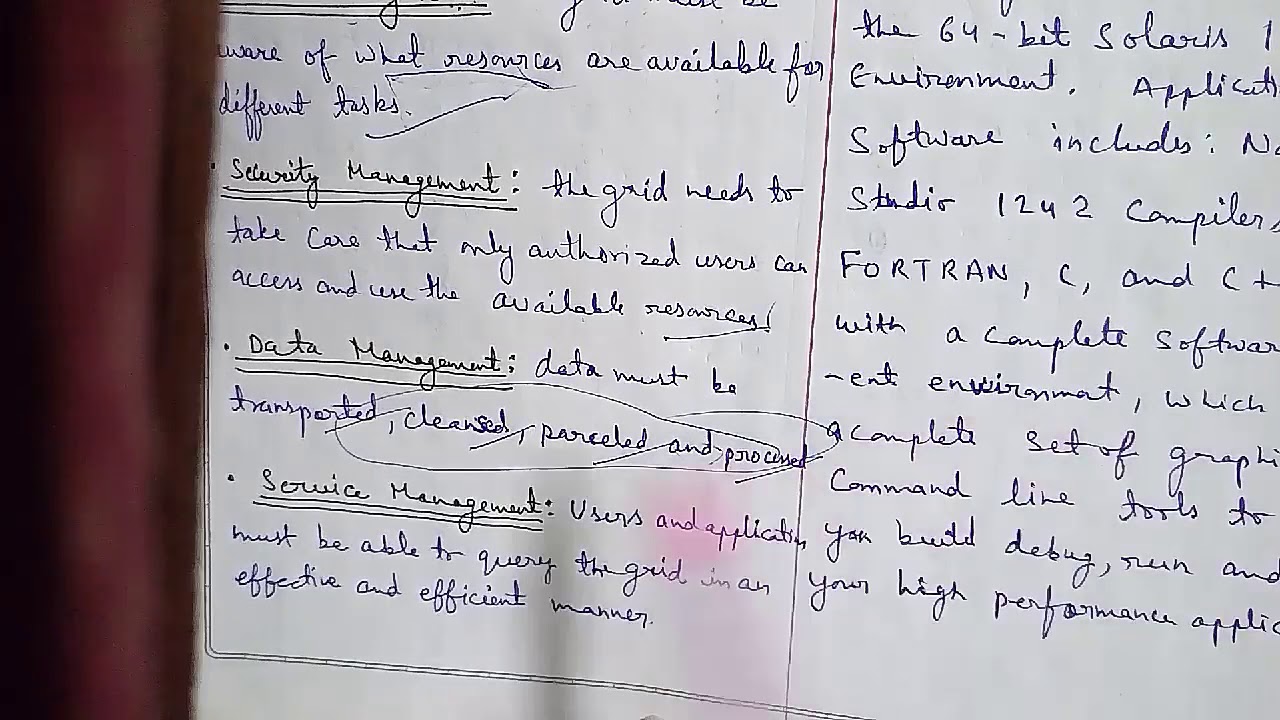 must be
ware of what resources are available for
different tasks.
• Security Management: the grid needs to
take care that only authorized users can
access and use the available resources!
• Data Management: data must be
transported, cleansed, parceled and processed
• Service Management: Users and application
must be able to query the grid in an
effective and efficient manner.
the 64-bit Solaris 1
Environment. Applicati
Software includes: N
Studio 12 u 2 Compilers
FORTRAN, C, and C+
with a complete softwar
-ent environmat, which
a complete set of graphi
Command line tools to
you build debug, run and
your high performance applic